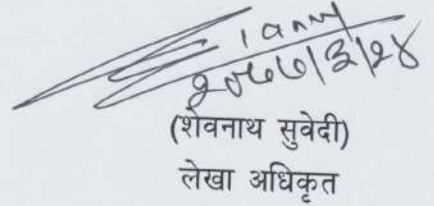 २०७७/३/२४
(शेवनाथ सुवेदी)
लेखा अधिकृत